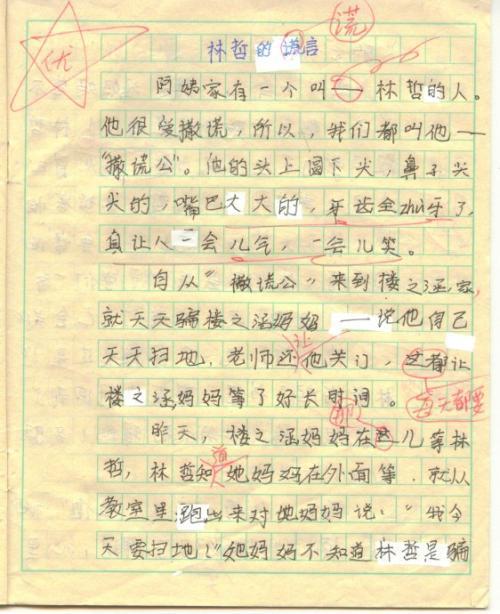 谎
优
林哲的谎言
阿姨家有一个叫——林哲的人。
他很爱撒谎，所以，我们都叫他—
“撒谎公”。他的头上圆下尖，鼻子尖
尖的，嘴巴大大的，牙齿全zhù牙了，
真让人一会儿气，一会儿笑。
自从“撒谎公”来到楼之涵家，
就天天骗楼之涵妈妈——说他自己
让
天天扫地，老师还他关门，这都让
楼之涵妈妈等了好长时间。
每天都要
那
昨天，楼之涵妈妈在这儿等林
道
哲，林哲知她妈妈在外面等，就从
教室里跑出来对她妈妈说：“我今
天要扫地！”她妈妈不知道林哲是骗